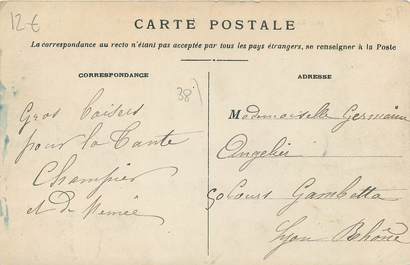 12 €
38
CARTE POSTALE
La correspondance au recto n'étant pas acceptée par tous les pays étrangers, se renseigner à la Poste
CORRESPONDANCE
Gros baisers
pour la tante
Champier
et de
38
ADRESSE
Mademoiselle Germaine
Angelier
50 Cours Gambetta
Lyon Rhône